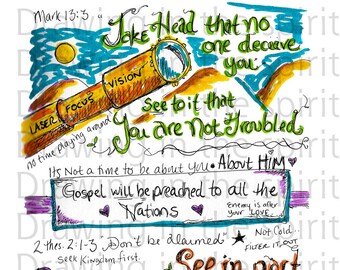 Mark 13:3
Take Head that no
one deceive
you
LASER FOCUS VISION
See to it that
You are Not Troubled
no time playing around
Its Not a time to be about you • About HIM
Gospel will be preached to all the
Nations
Enemy is after
your LOVE
Not Cold...
FILTER IT OUT
2 thes. 2:1-3 "Don't be alarmed"
SEEK Kingdom first
See in part